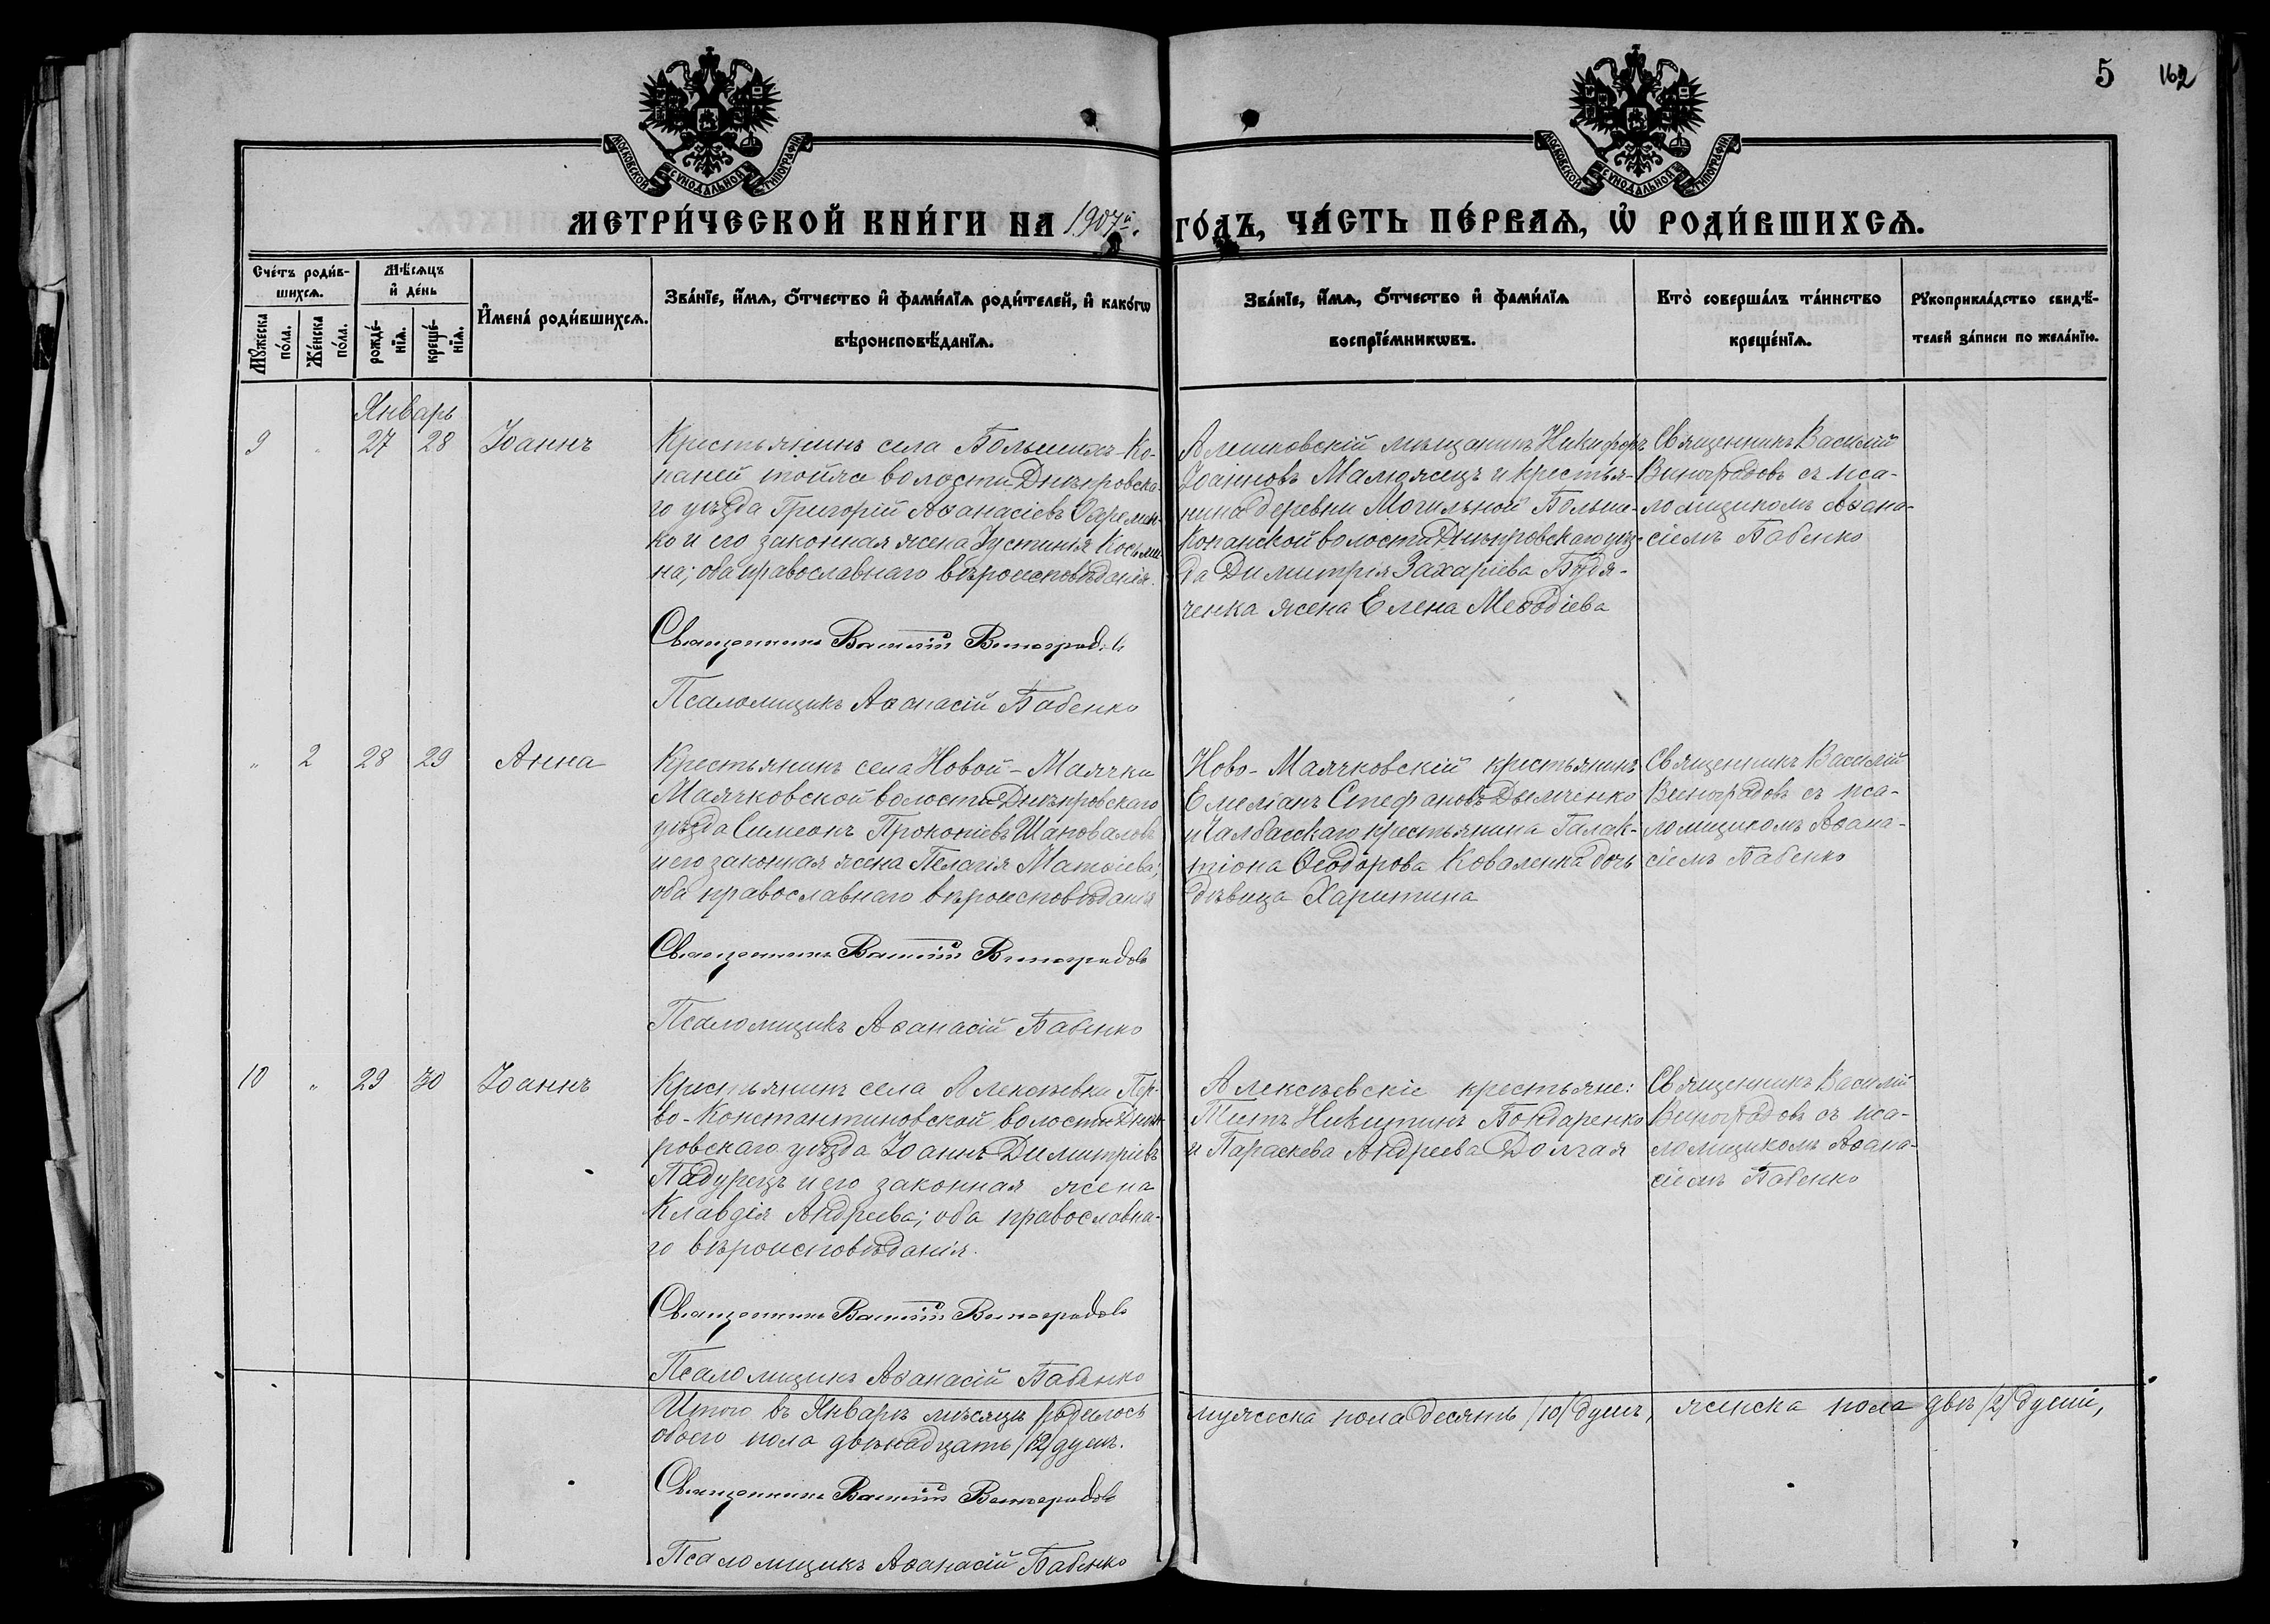 5 162
МОСКОВСКОЙ СУНОДАЛЬНОЙ ТИПОГРАФІИ
МОСКОВСКОЙ СУНОДАЛЬНОЙ ТИПОГРАФІИ
МЕТРИ́ЧЕСКОЙ КНИ́ГИ НА 1907й. ГО́ДЪ, ЧА́СТЬ ПЕ́РВАѦ, Ѡ҆ РОДИ́ВШИХСѦ.
Сче́тъ роди́в-
шихсѧ.
Мꙋ́жеска по́ла.
Же́нска по́ла.
Мѣ́сѧцъ
и҆ де́нь
рожде́-
нїѧ.
креще́-
нїѧ.
И҆мена̀ роди́вшихсѧ.
Зва́нїе, и҆́мѧ, ѻ҆́тчество и҆ фами́лїѧ роди́телей, и҆ како́гѡ
вѣроисповѣ́данїѧ.
Зва́нїе, и҆́мѧ, ѻ҆́тчество и҆ фами́лїѧ
воспрїе́мникѡвъ.
Кто̀ соверша́лъ та́инство
креще́нїѧ.
Рꙋкоприкла́дство свидѣ́-
телей за́писи по жела́нїю.
Январь
9 " 27 28 Іоаннъ
Крестьянинъ села Большихъ-Ко-
паней тойже волости Днѣпровска-
го уѣзда Григорій Аѳанасіевъ Ѳеремен-
ко и его законная жена Іустинія Косьми-
на; оба православнаго вѣроисповѣданія.
Священникъ Василій Виноградовъ
Псаломщикъ Аѳанасій Бабенко
Алешковскій мѣщанинъ Никифоръ
Іоанновъ Малюжецъ и крестья-
нина деревни Могильной Больше-
Копанской волости Днѣпровскаго уѣз-
да Димитрія Захаріева Будя-
ченка жена Елена Меѳодіева
Священникъ Василій
Виноградовъ съ пса-
ломщикомъ Аѳана-
сіемъ Бабенко
" 2 28 29 Анна
Крестьянинъ села Новой-Маячки
Маячковской волости Днѣпровскаго
уѣзда Симеонъ Прокопіевъ Шаповаловъ
и его законная жена Пелагія Матѳіева;
оба православнаго вѣроисповѣданія
Священникъ Василій Виноградовъ
Псаломщикъ Аѳанасій Бабенко
Ново-Маячковскій крестьянинъ
Емеліанъ Стефановъ Дымченко
и Чалбасскаго крестьянина Галак-
тіона Ѳеодорова Коваленка дочь
дѣвица Харитина
Священникъ Василій
Виноградовъ съ пса-
ломщикомъ Аѳана-
сіемъ Бабенко
10 " 29 30 Іоаннъ
Крестьянинъ села Алексѣевки Пер-
во-Константиновской волости Днѣп-
ровскаго уѣзда Іоаннъ Димитріевъ
Падурецъ и его законная жена
Клавдія Андреева; оба православна-
го вѣроисповѣданія.
Священникъ Василій Виноградовъ
Псаломщикъ Аѳанасій Бабенко
Алексѣевскіе крестьяне:
Титъ Никитинъ Бондаренко
и Параскева Андреева Долгая
Священникъ Василій
Виноградовъ съ пса-
ломщикомъ Аѳана-
сіемъ Бабенко
Итого въ Январѣ мѣсяцѣ родилось мужеска пола десять /10/ душъ, женска пола двѣ /2/ души,
обоего пола двѣнадцать /12/ душъ.
Священникъ Василій Виноградовъ
Псаломщикъ Аѳанасій Бабенко